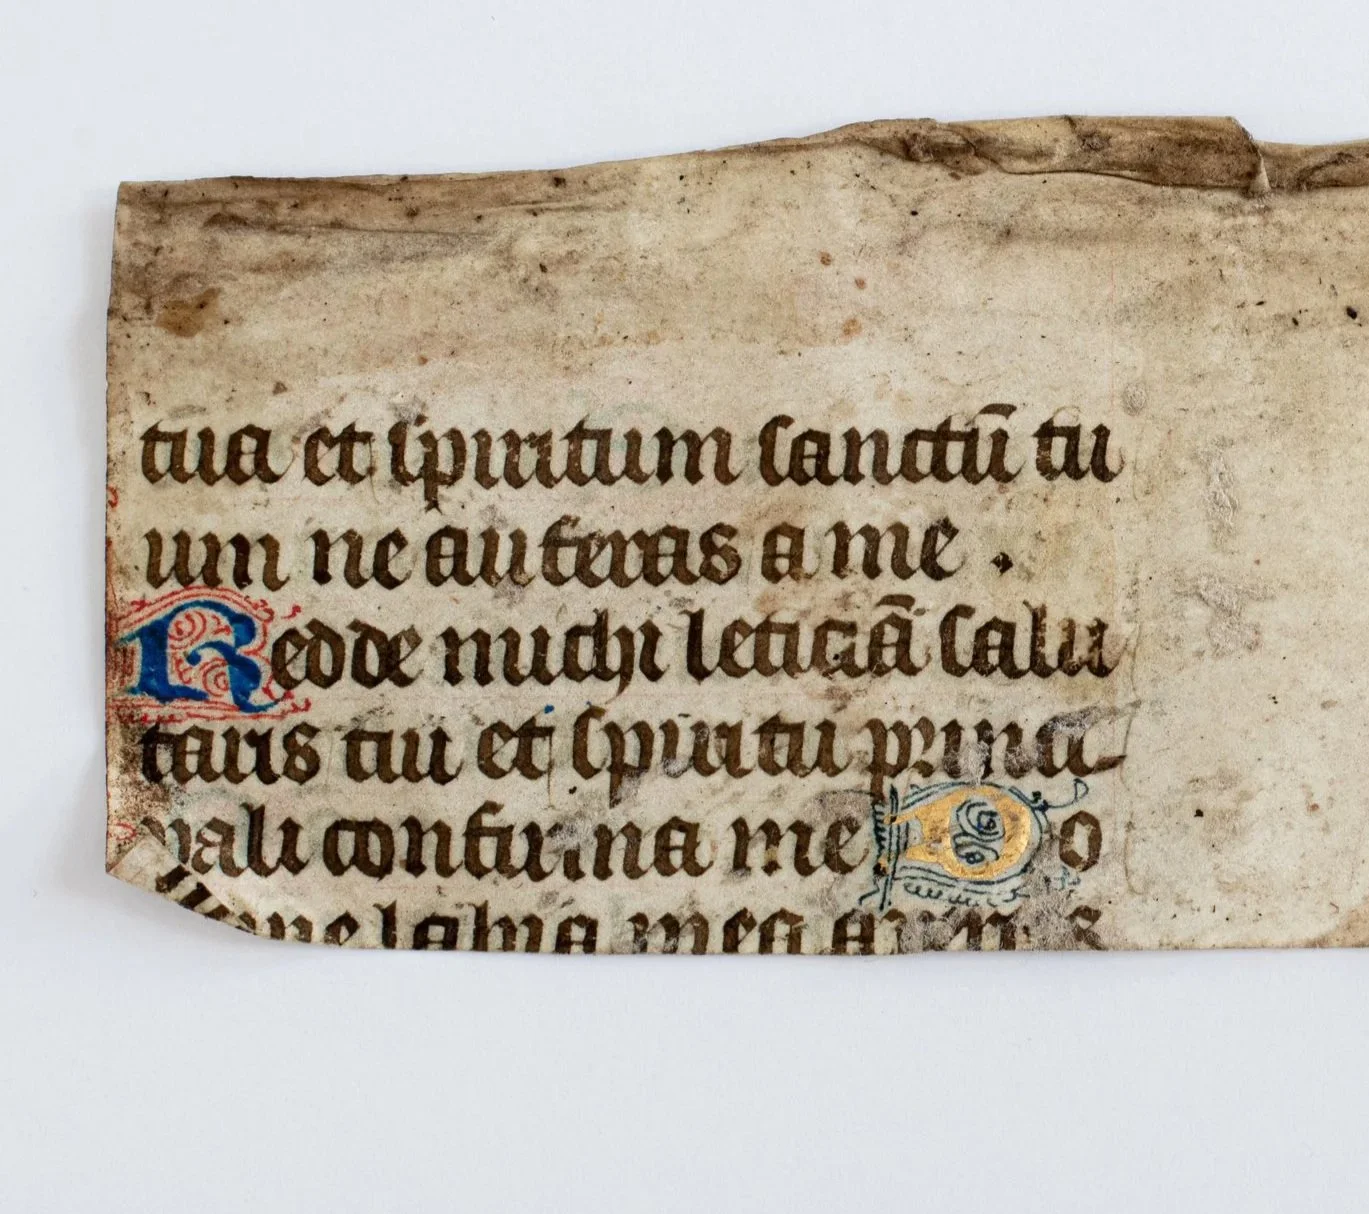 tua et spiritum sanctū tu
um ne auferas a me .
Redde michi leticiā salu
taris tui et spiritu princi
pali confirma me Do
mine labia mea aperies